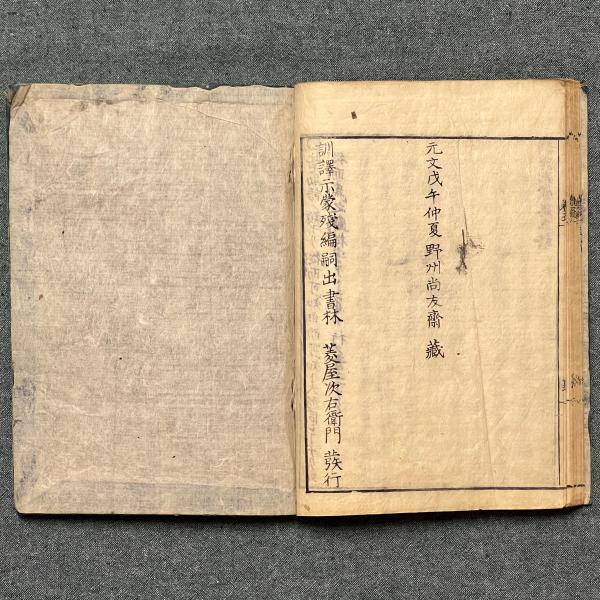 元文戊午仲夏野州尚友齋 藏
訓譯示蒙殘編嗣出書林 菱屋次右衛門 發行